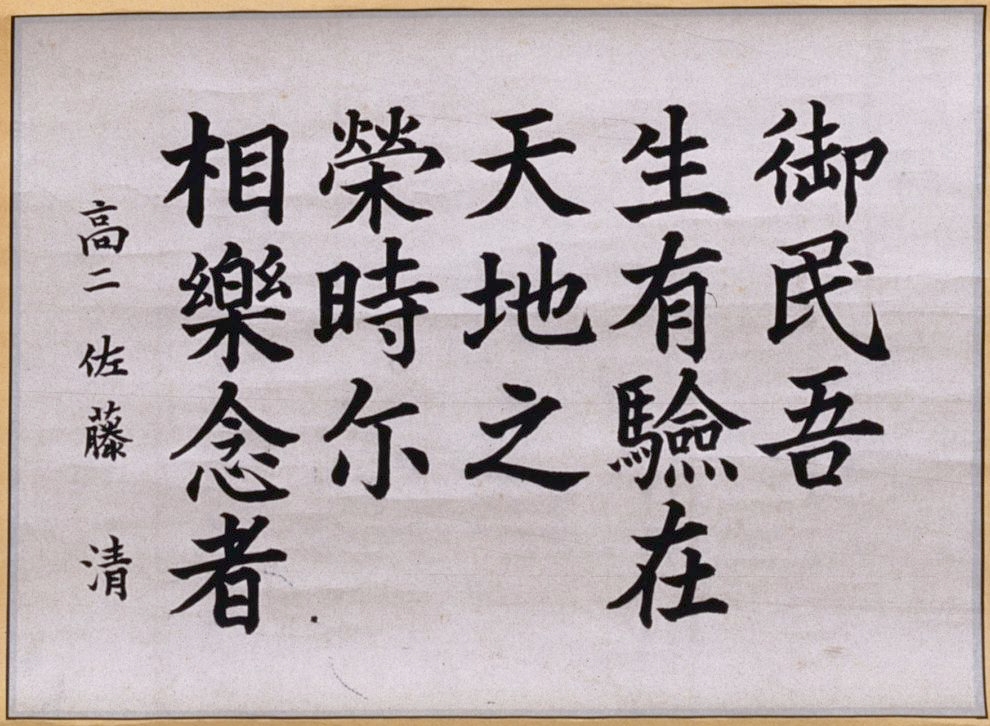 御民吾
生有驗在
天地之
榮時尓
相樂念者
高二 佐藤 清